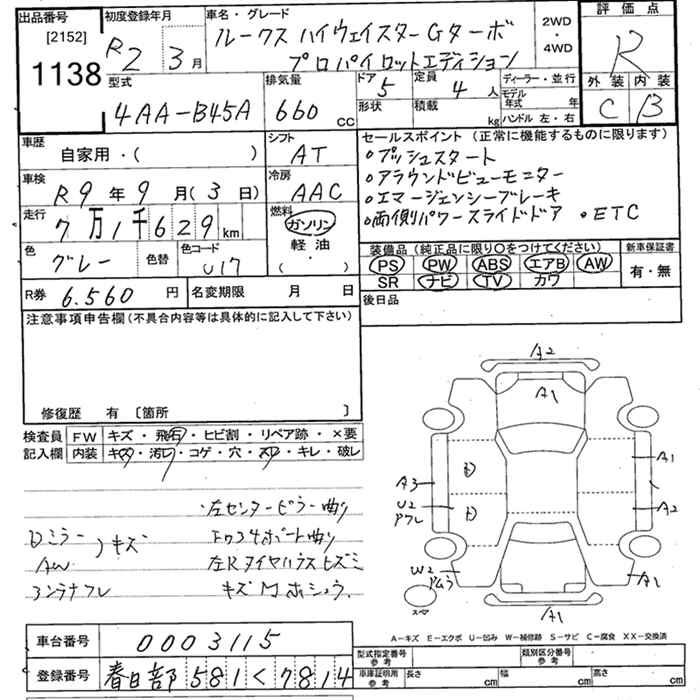 出品番号 初度登録年月 車名・グレード 2WD・4WD 評価点
[2152] R2 3月 ルークス ハイウェイスターGターボ R
1138 プロパイロットエディション
型式 排気量 ドア 定員 ディーラー・並行 外装 内装
4AA-B45A 660 CC 5 4人 モデル年式 年 C B
形状 積載 kg ハンドル 左・右
車歴 シフト セールスポイント (正常に機能するものに限ります)
自家用・( ) AT ・プッシュスタート
車検 冷房 ・アラウンドビューモニター
R9年9月(3日) AAC ・エマージェンシーブレーキ
走行 燃料 ・両側パワースライドドア ・ETC
7万1千629km ガソリン
軽油
( ・ )
色 色替 色コード 装備品 (純正品に限り○をつけてください) 新車保証書
グレー U17 PS PW ABS エアB AW 有・無
SR ナビ TV カワ
R券 6.560円 名変期限 月 日 後日品
注意事項申告欄(不具合内容等は具体的に記入して下さい)
修復歴 有 〔箇所 〕
検査員 FW キズ・飛石・ヒビ割・リペア跡・×要
記入欄 内装 キズ・汚レ・コゲ・穴・スレ・キレ・破レ
・左センターピラー曲り
Dミラー
AW
キズ
左Rタイヤハウスヒズミ
A2
A1
A1
A3
U2
A2
W2
A1
A1
スペ
A-キズ E-エクボ U-凹み W-補修跡 S-サビ C-腐食 XX-交換済
車台番号 0003115
型式指定番号 参考 類別区分番号 参考
登録番号 春日部 581 く 7814
車庫証明用 参考 長さ cm 幅 cm 高さ cm